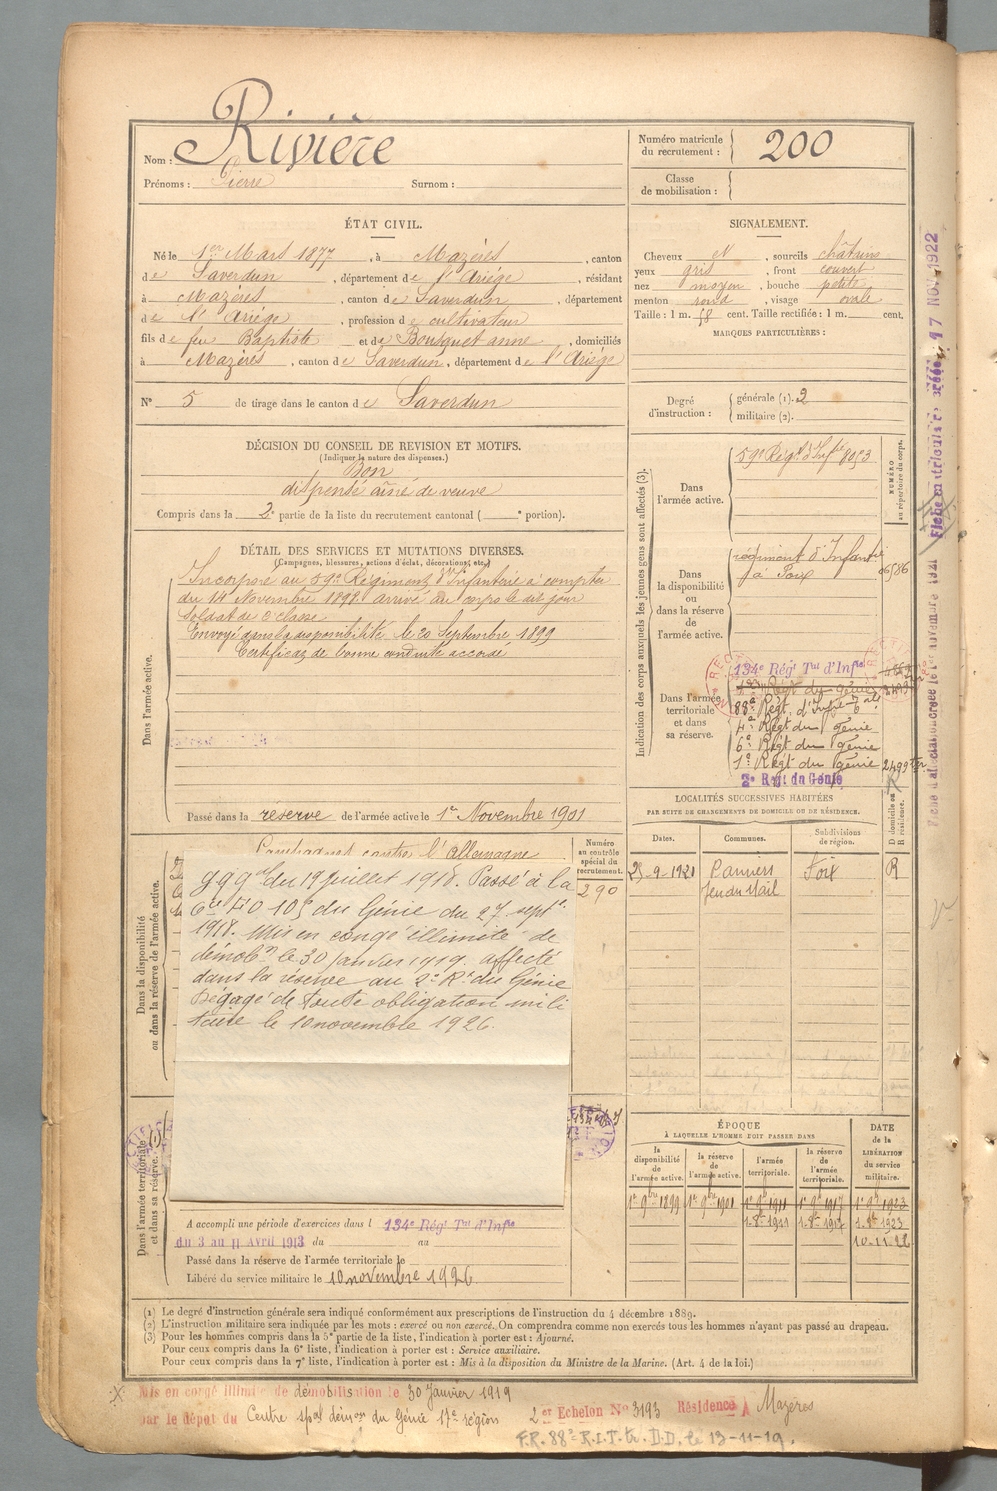 Nom : Rivière
Prénoms : Pierre Surnom :
Numéro matricule du recrutement : 200
Classe de mobilisation :
ÉTAT CIVIL.
Né le 1er Mars 1877, à Mazères, canton
de Saverdun, département de l'Ariège, résidant
à Mazères, canton de Saverdun, département
de l'Ariège, profession de cultivateur
fils de feu Baptiste et de Bousquet anne, domiciliés
à Mazères, canton de Saverdun, département de l'Ariège
N° 5 de tirage dans le canton de Saverdun
SIGNALEMENT.
Cheveux et, sourcils châtains
yeux gris, front couvert
nez moyen, bouche petite
menton rond, visage ovale
Taille : 1 m. 58 cent. Taille rectifiée : 1 m. cent.
MARQUES PARTICULIÈRES :
Degré d'instruction : générale (1). 2
militaire (2).
DÉCISION DU CONSEIL DE REVISION ET MOTIFS.
(Indiquer la nature des dispenses.)
Bon
dispensé aîné de veuve
Compris dans la 2e partie de la liste du recrutement cantonal ( e portion).
DÉTAIL DES SERVICES ET MUTATIONS DIVERSES.
(Campagnes, blessures, actions d'éclat, décorations, etc.)
Dans l'armée active.
Incorporé au 59e Régiment d'Infanterie à compter
du 14 Novembre 1898. arrivé au corps le dit jour
Soldat de 2e classe
Envoyé dans la disponibilité le 20 Septembre 1899
Certificat de bonne conduite accordé
Passé dans la réserve de l'armée active le 1er Novembre 1901
Indication des corps auxquels les jeunes gens sont affectés (3).
NUMÉRO au répertoire du corps.
Dans l'armée active.
59e Régt d'Infie 8053
Dans la disponibilité ou dans la réserve de l'armée active.
régiment d'Infanterie
à Foix
Dans l'armée territoriale et dans sa réserve.
134e Régt Tal d'Infie
88e Régt d'Infie Tale
4e Régt du Génie
6e Régt du Génie
1e Régt du Génie
2e Regt du Génie
Dans la disponibilité ou dans la réserve de l'armée active.
Campagnes contre l'Allemagne
Numéro au contrôle spécial du recrutement.
290
du 19 juillet 1918. Passé à la
du Génie du 27 septe
1918. Mis en congé illimité de
démobon le 30 janvier 1919. affecté
dans la réserve au 2e Rt du Génie
Dégagé de toute obligation mili
taire le 10 novembre 1926.
LOCALITÉS SUCCESSIVES HABITÉES
PAR SUITE DE CHANGEMENTS DE DOMICILE OU DE RÉSIDENCE.
Dates. Communes. Subdivisions de région. D domicile ou R résidence.
25-9-1921 Pamiers Foix R
Jeu du Mail
Dans l'armée territoriale et dans sa réserve.
A accompli une période d'exercices dans l 134e Régt Tal d'Infie
du 3 au 11 Avril 1913 du au
Passé dans la réserve de l'armée territoriale le
Libéré du service militaire le 10 novembre 1926
ÉPOQUE
À LAQUELLE L'HOMME DOIT PASSER DANS
la disponibilité de l'armée active. la réserve de l'armée active. l'armée territoriale. la réserve de l'armée territoriale. DATE de la LIBÉRATION du service militaire.
1er 9bre 1899 1er 9bre 1901 1er 9bre 1911 1er 9bre 1917 1er 9bre 1923
10-11-26
(1) Le degré d'instruction générale sera indiqué conformément aux prescriptions de l'instruction du 4 décembre 1889.
(2) L'instruction militaire sera indiquée par les mots : exercé ou non exercé. On comprendra comme non exercés tous les hommes n'ayant pas passé au drapeau.
(3) Pour les hommes compris dans la 5e partie de la liste, l'indication à porter est : Ajourné.
Pour ceux compris dans la 6e liste, l'indication à porter est : Service auxiliaire.
Pour ceux compris dans la 7e liste, l'indication à porter est : Mis à la disposition du Ministre de la Marine. (Art. 4 de la loi.)
Mis en congé illimité de démobilisation le 30 Janvier 1919
par le dépôt du Centre spal démon du Génie 17e région 2 er Echelon N° 3193 Résidence à Mazères
F.R. 88e R.I.T. D.D. le 13-11-19.
Fiche d'affectation créée le 1er novembre 1921
Fiche matriculaire créée 17 NOV. 1922